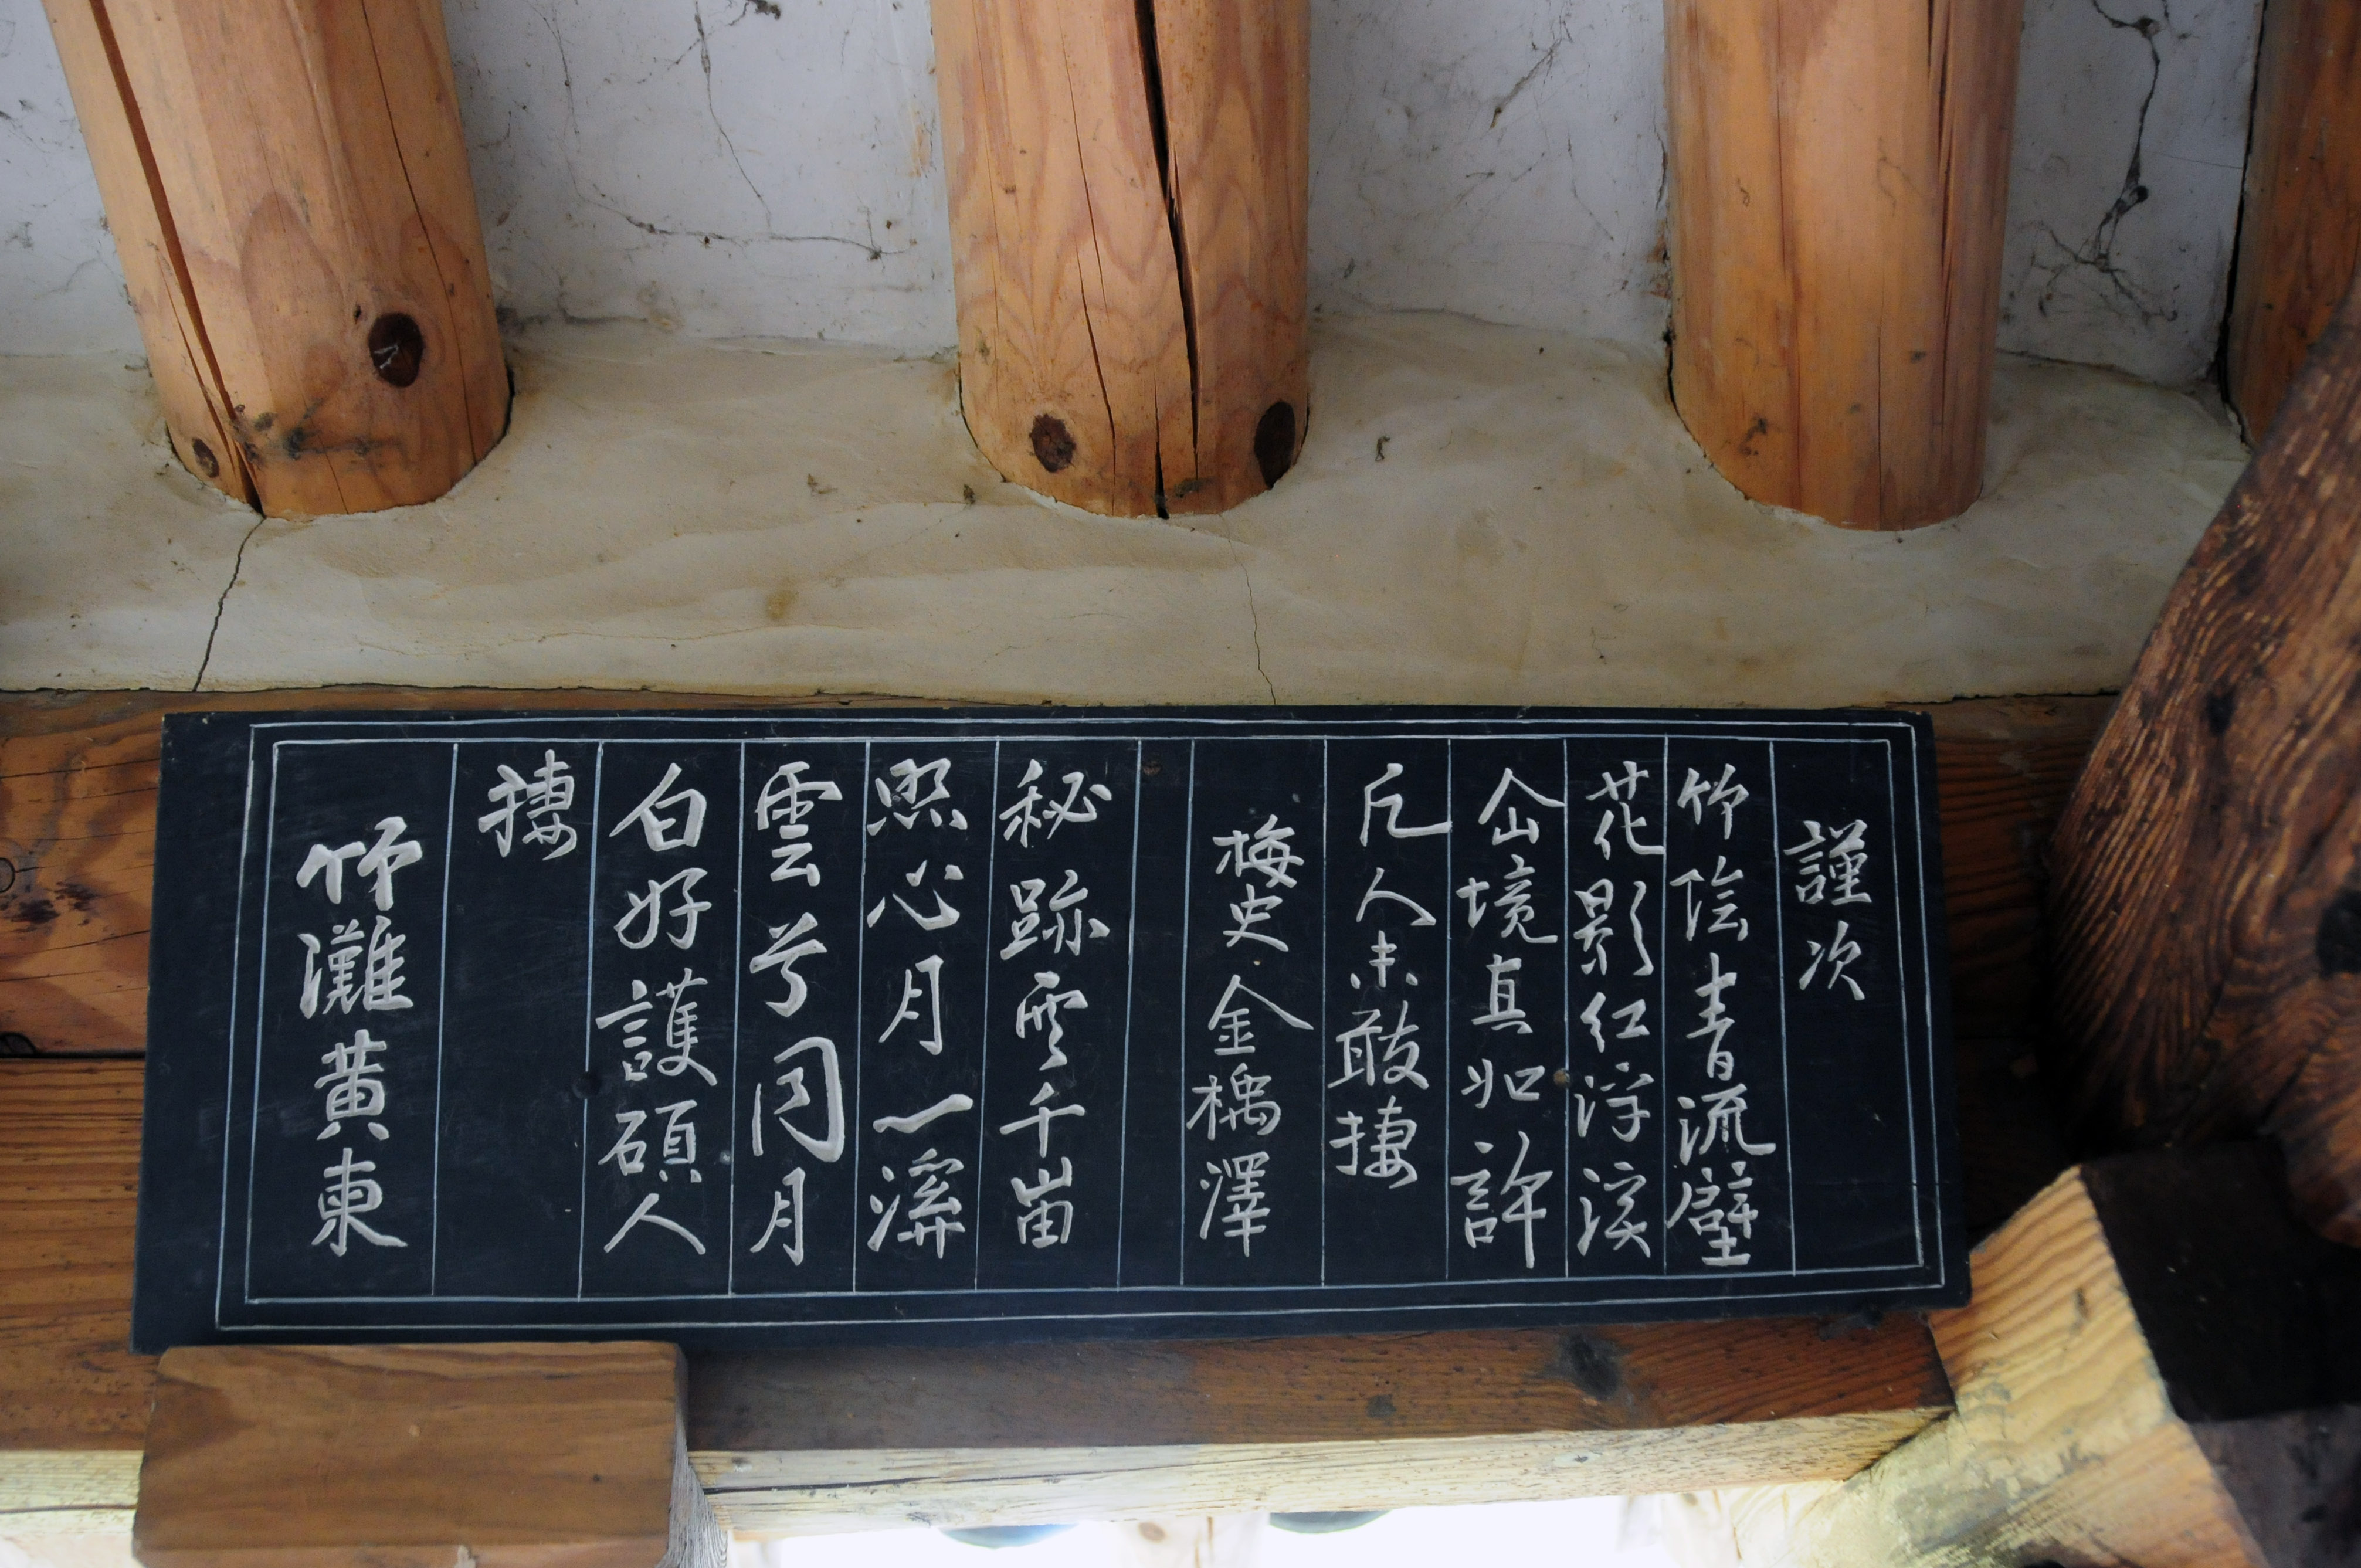 謹次
竹陰青流壁
花影紅浮溪
仚境真如許
凡人未敢捿
梅史 金楀澤
秘跡雲千峀
照心月一溪
雲兮同月
白好護碩人
捿
竹灘黃東